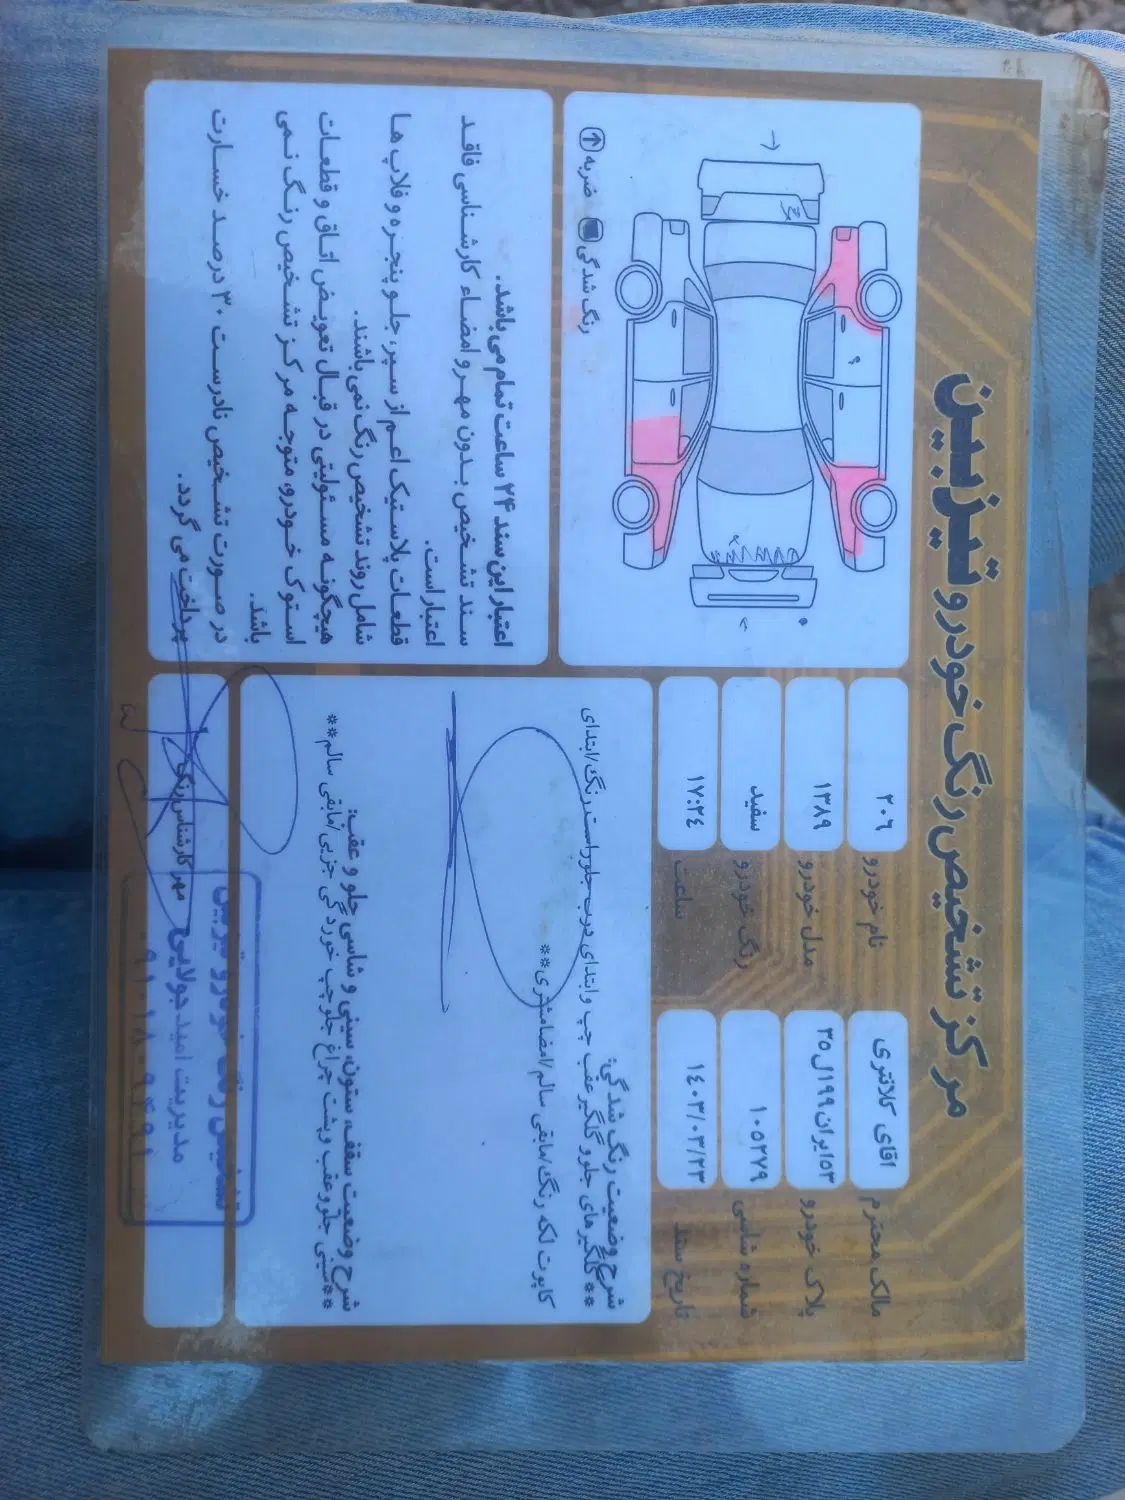 مرکز تشخیص رنگ خودرو تیزبین
مالک محترم
اقای کلانتری
نام خودرو
۲۰۶
پلاک خودرو
۵۳ایران۱۹۹ل۳۵
مدل خودرو
۱۳۸۹
شماره شاسی
۱۰۵۲۷۹
رنگ خودرو
سفید
تاریخ سند
۱۴۰۳/۰۳/۲۳
ساعت
۱۷:۲۴
ضربه
رنگ شدگی
شرح وضعیت رنگ شدگی:
**گلگیرهای جلو و گلگیر عقب چپ و ابتدای درب جلو راست رنگ/ابتدای
کاپوت لکه رنگ/مابقی سالم/امضامشتری**
شرح وضعیت سقف، ستون، سینی و شاسی جلو و عقب:
**سینی جلو وعقب وپشت چراغ جلو چپ خوردگی جزیی/مابقی سالم**
اعتبار این سند ۲۴ ساعت تمام می باشد.
سند تشخیص بدون مهر و امضاء کارشناسی فاقد
اعتبار است.
قطعات پلاستیک اعم از سپر، جلو پنجره و فلاپ ها
شامل روند تشخیص رنگ نمی باشند.
هیچگونه مسئولیتی در قبال تعویض اتاق و قطعات
استوک خودرو، متوجه مرکز تشخیص رنگ نمی
باشد.
در صورت تشخیص نادرست ۳۰ درصد خسارت
پرداخت می گردد.
مهر کارشناس رنگ
تشخیص رنگ خودرو تیزبین
مدیریت امید جولایی